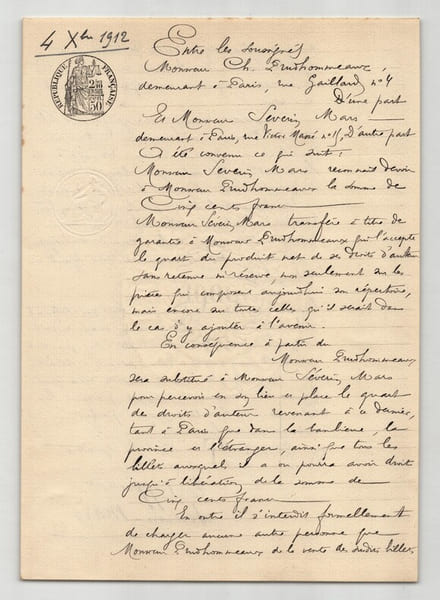 4 Xbre 1912
RÉPUBLIQUE FRANÇAISE
2/10
50
Entre les soussignés
Monsieur Ch. Prudhommeaux,
demeurant à Paris, rue Gaillard n° 4
D'une part
Et Monsieur Severin Mars
demeurant à Paris, rue Victor Massé n° 15, D'autre part
A été convenu ce qui suit :
Monsieur Séverin Mars reconnait devoir
à Monsieur Prudhommeaux la somme de
Cinq cents francs
Monsieur Séverin Mars transfère à titre de
garantie à Monsieur Prudhommeaux qui l'accepte
le quart du produit net de ses droits d'auteur
sans retenue ni réserve, non seulement sur les
pièces qui composent aujourd'hui son répertoire,
mais encore sur toutes celles qu'il serait dans
le cas d'y ajouter à l'avenir.
En conséquence à partir du
Monsieur Prudhommeaux
sera substitué à Monsieur Séverin Mars
pour percevoir en son lieu et place le quart
des droits d'auteur revenant à ce dernier,
tant à Paris que dans la banlieue, la
province et l'étranger, ainsi que tous les
billets auxquels il a ou pourra avoir droit
jusqu'à libération de la somme de
Cinq cents francs
En outre il s'interdit formellement
de charger aucune autre personne que
Monsieur Prudhommeaux de la vente de susdits billets.